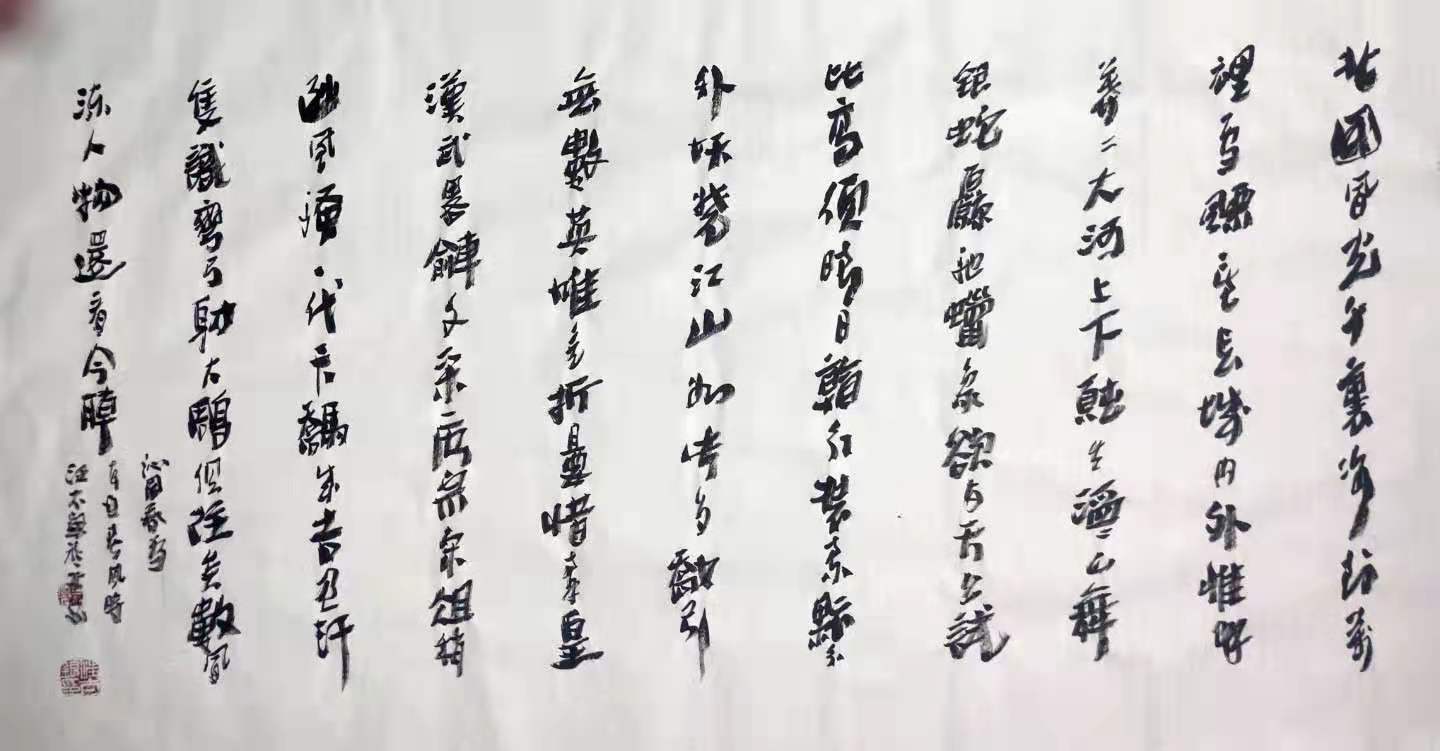 北國風光千裏冰封萬
裡雪飄望長城內外惟餘
莽二大河上下頓失滔二山舞
銀蛇原馳蠟象欲与天公試
比高須晴日看紅裝素
外妖嬈江山如此多嬌引
無數英雄竞折腰惜秦皇
漢武畧輸文采唐宗宋祖稍
遜風騷一代天驕成吉思汗
隻識彎弓射大鵰俱往矣數風
流人物還看今朝
沁園春雪
春風時